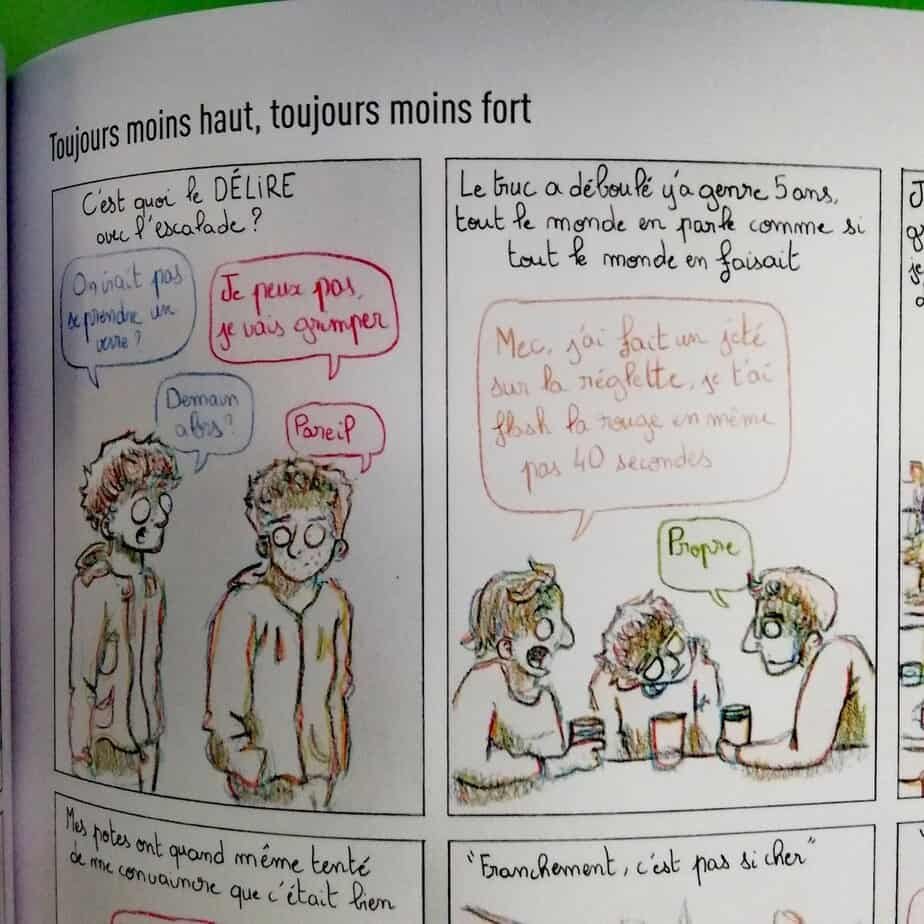 Toujours moins haut, toujours moins fort
C'est quoi le DÉLIRE
avec l'escalade ?
On irait pas
se prendre un
verre ?
Je peux pas,
je vais grimper
Demain
alors ?
Pareil
Le truc a déboulé y'a genre 5 ans,
tout le monde en parle comme si
tout le monde en faisait
Mec, j'ai fait un jeté
sur la réglette, je t'ai
flash la rouge en même
pas 40 secondes
Propre
Mes potes ont quand même tenté
de me convaincre que c'était bien
"Franchement, c'est pas si cher"